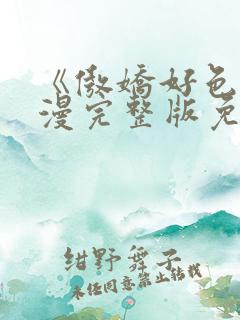 《傲娇好色
漫完整版免
绀野舞子
未经同意禁止转载